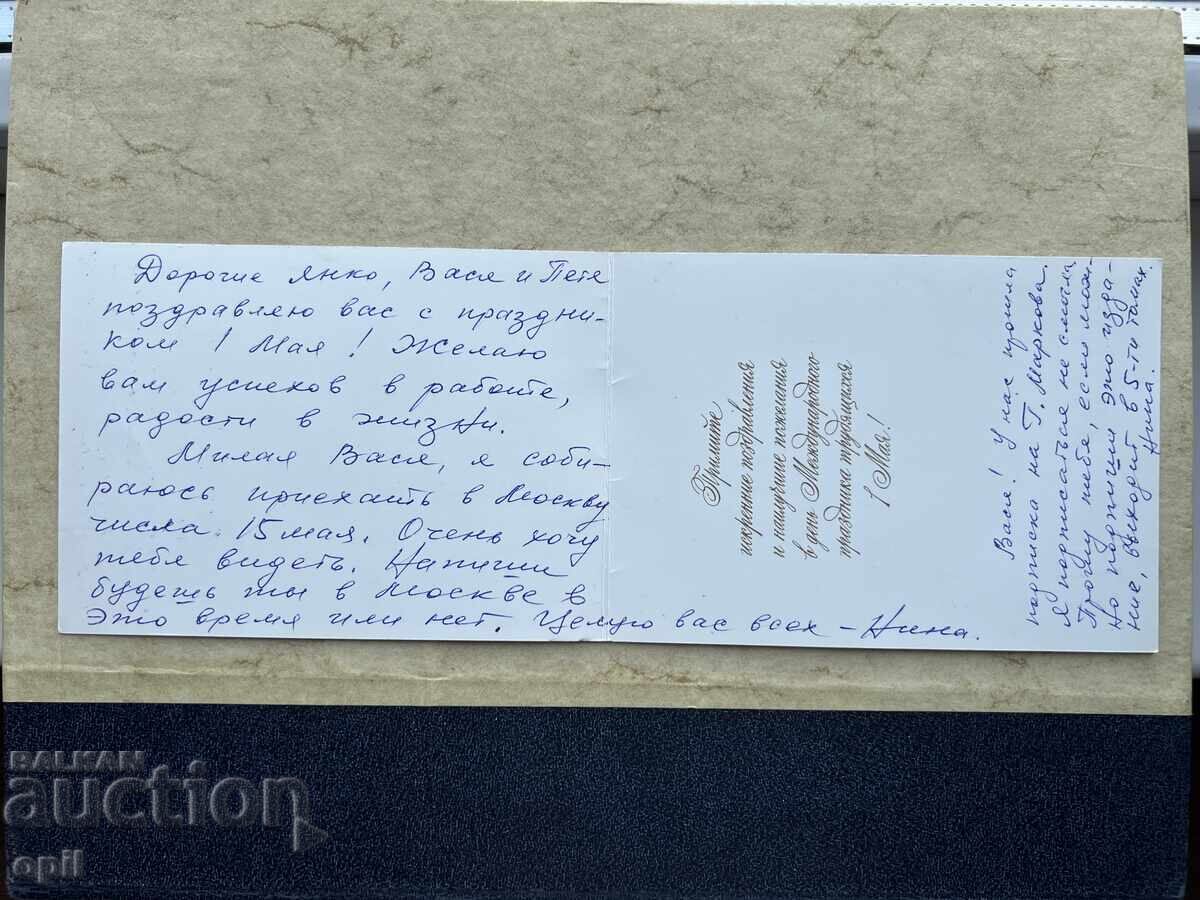 Дорогие Янко, Вася и Петя
поздравляю вас с праздни-
ком 1 Мая! Желаю
вам успехов в работе,
радости в жизни.
Милая Вася, я соби-
раюсь приехать в Москву
числа 15 мая. Очень хочу
тебя видеть. Напиши
будешь ты в Москве в
это время или нет. Целую вас всех – Нина.
Примите
искренние поздравления
и наилучшие пожелания
в день Международного
праздника трудящихся
1 Мая!
Вася! У нас прошла
подписка на Г. Маркова.
Я подписаться не смогла.
Прошу тебя, если мож-
но подпиши это изда-
ние, выходит в 5-ти томах.
Нина.
BALKAN
auction
opil